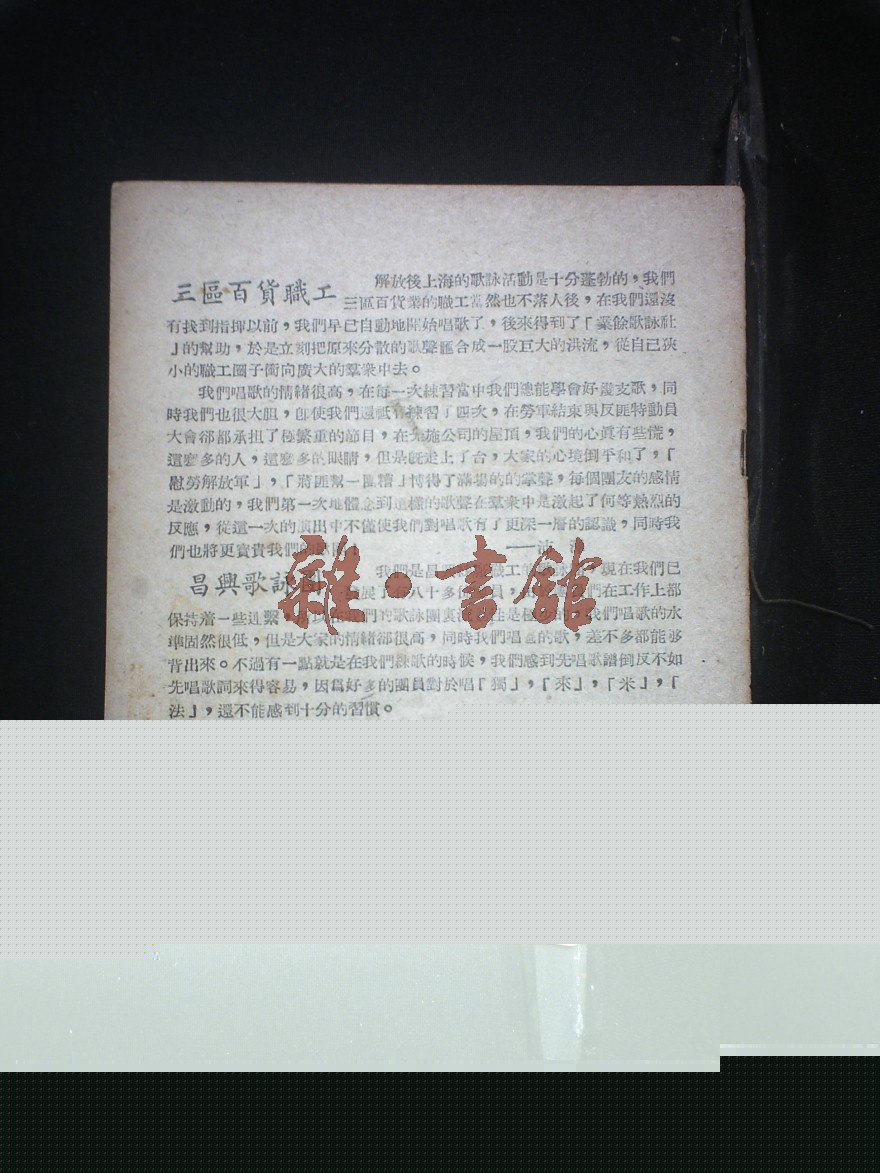 三區百貨職工
解放後上海的歌詠活動是十分蓬勃的，我們
三區百貨業的職工當然也不落人後，在我們還沒
有找到指揮以前，我們早已自動地開始唱歌了，後來得到了「業餘歌詠社
」的幫助，於是立刻把原來分散的歌聲匯合成一股巨大的洪流，從自己狹
小的職工圈子衝向廣大的羣衆中去。
我們唱歌的情緒很高，在每一次練習當中我們總能學會好幾支歌，同
時我們也很大胆，卽使我們還祇有練習了四次，在勞軍結束與反匪特動員
大會卻都承担了極繁重的節目，在先施公司的屋頂，我們的心眞有些慌，
這麽多的人，這麽多的眼睛，但是旣走上了台，大家的心境倒平和了，「
慰勞解放軍」，「蔣匪幫一團糟」博得了滿場的的掌聲，每個團友的感情
是激動的，我們第一次地體念到這樣的歌聲在羣衆中是激起了何等熱烈的
反應，從這一次的演出中不僅使我們對唱歌有了更深一層的認識，同時我
們也將更寶貴我們的
昌興歌詠團
我們是昌 職工 現在我們已
發展了有八十多個 員， 我們在工作上都
保持着一些連繫，所以在我們的歌詠團裏 是極 我們唱歌的水
準固然很低，但是大家的情緒都很高，同時我們唱過的歌，差不多都能够
背出來。不過有一點就是在我們練歌的時候，我們感到先唱歌譜倒反不如
先唱歌詞來得容易，因爲好多的團員對於唱「獨」，「來」，「米」，「
法」，還不能感到十分的習慣。
雜·書館